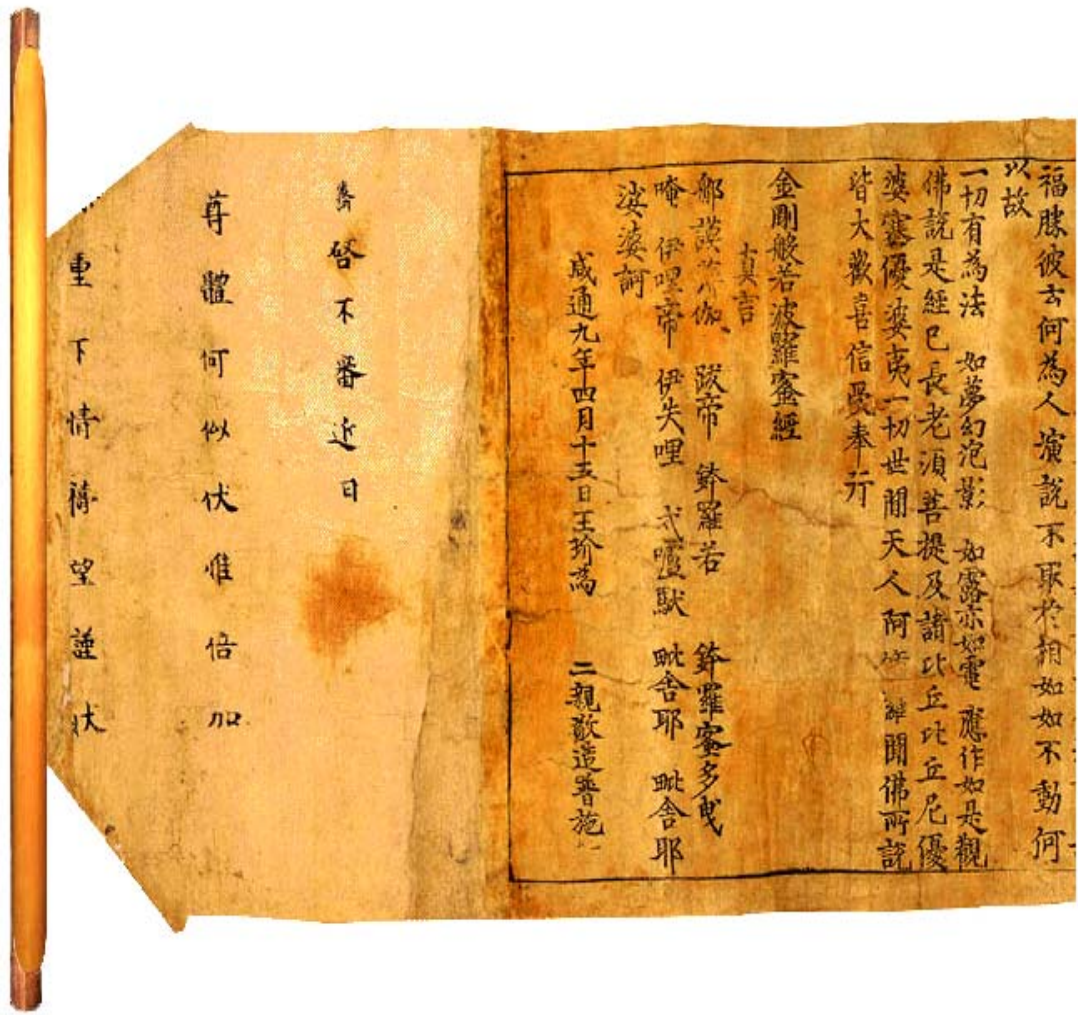 福勝彼云何為人演說不取於相如如不動何
以故
一切有為法　如夢幻泡影　如露亦如電　應作如是觀
佛說是經已長老須菩提及諸比丘比丘尼優
婆塞優婆夷一切世間天人阿修羅聞佛所說
皆大歡喜信受奉行
金剛般若波羅蜜經
真言
那謨 伽　跋帝　鉢羅若　鉢羅蜜多曳
唵　伊哩帝　伊失哩　戍嚧馱　毗舍耶　毗舍耶
娑婆訶
咸通九年四月十五日王玠為　二親敬造普施
啓不審近日
尊體何似伏惟倍加
重下情禱望謹狀